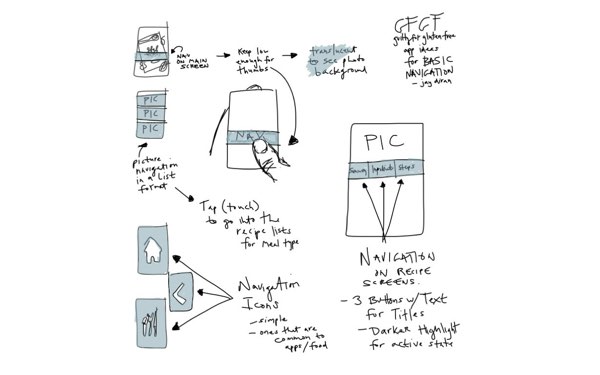 NAV
ON MAIN
SCREEN
Keep low
enough for
thumbs
translucent
to see photo
background
GFGF
guilty for gluten free
app ideas
for BASIC
NAVIGATION
PIC
PIC
PIC
picture
navigation
in a list
format
NAV
Tap (touch)
to go into the
recipe lists
for meal type
PIC
Steps
NAVIGATION
ON RECIPE
SCREENS.
- 3 Buttons w/ Text
for Titles
- Darker Highlight
for active state
Navigation
Icons
- simple
- ones that are
common to
apps/food